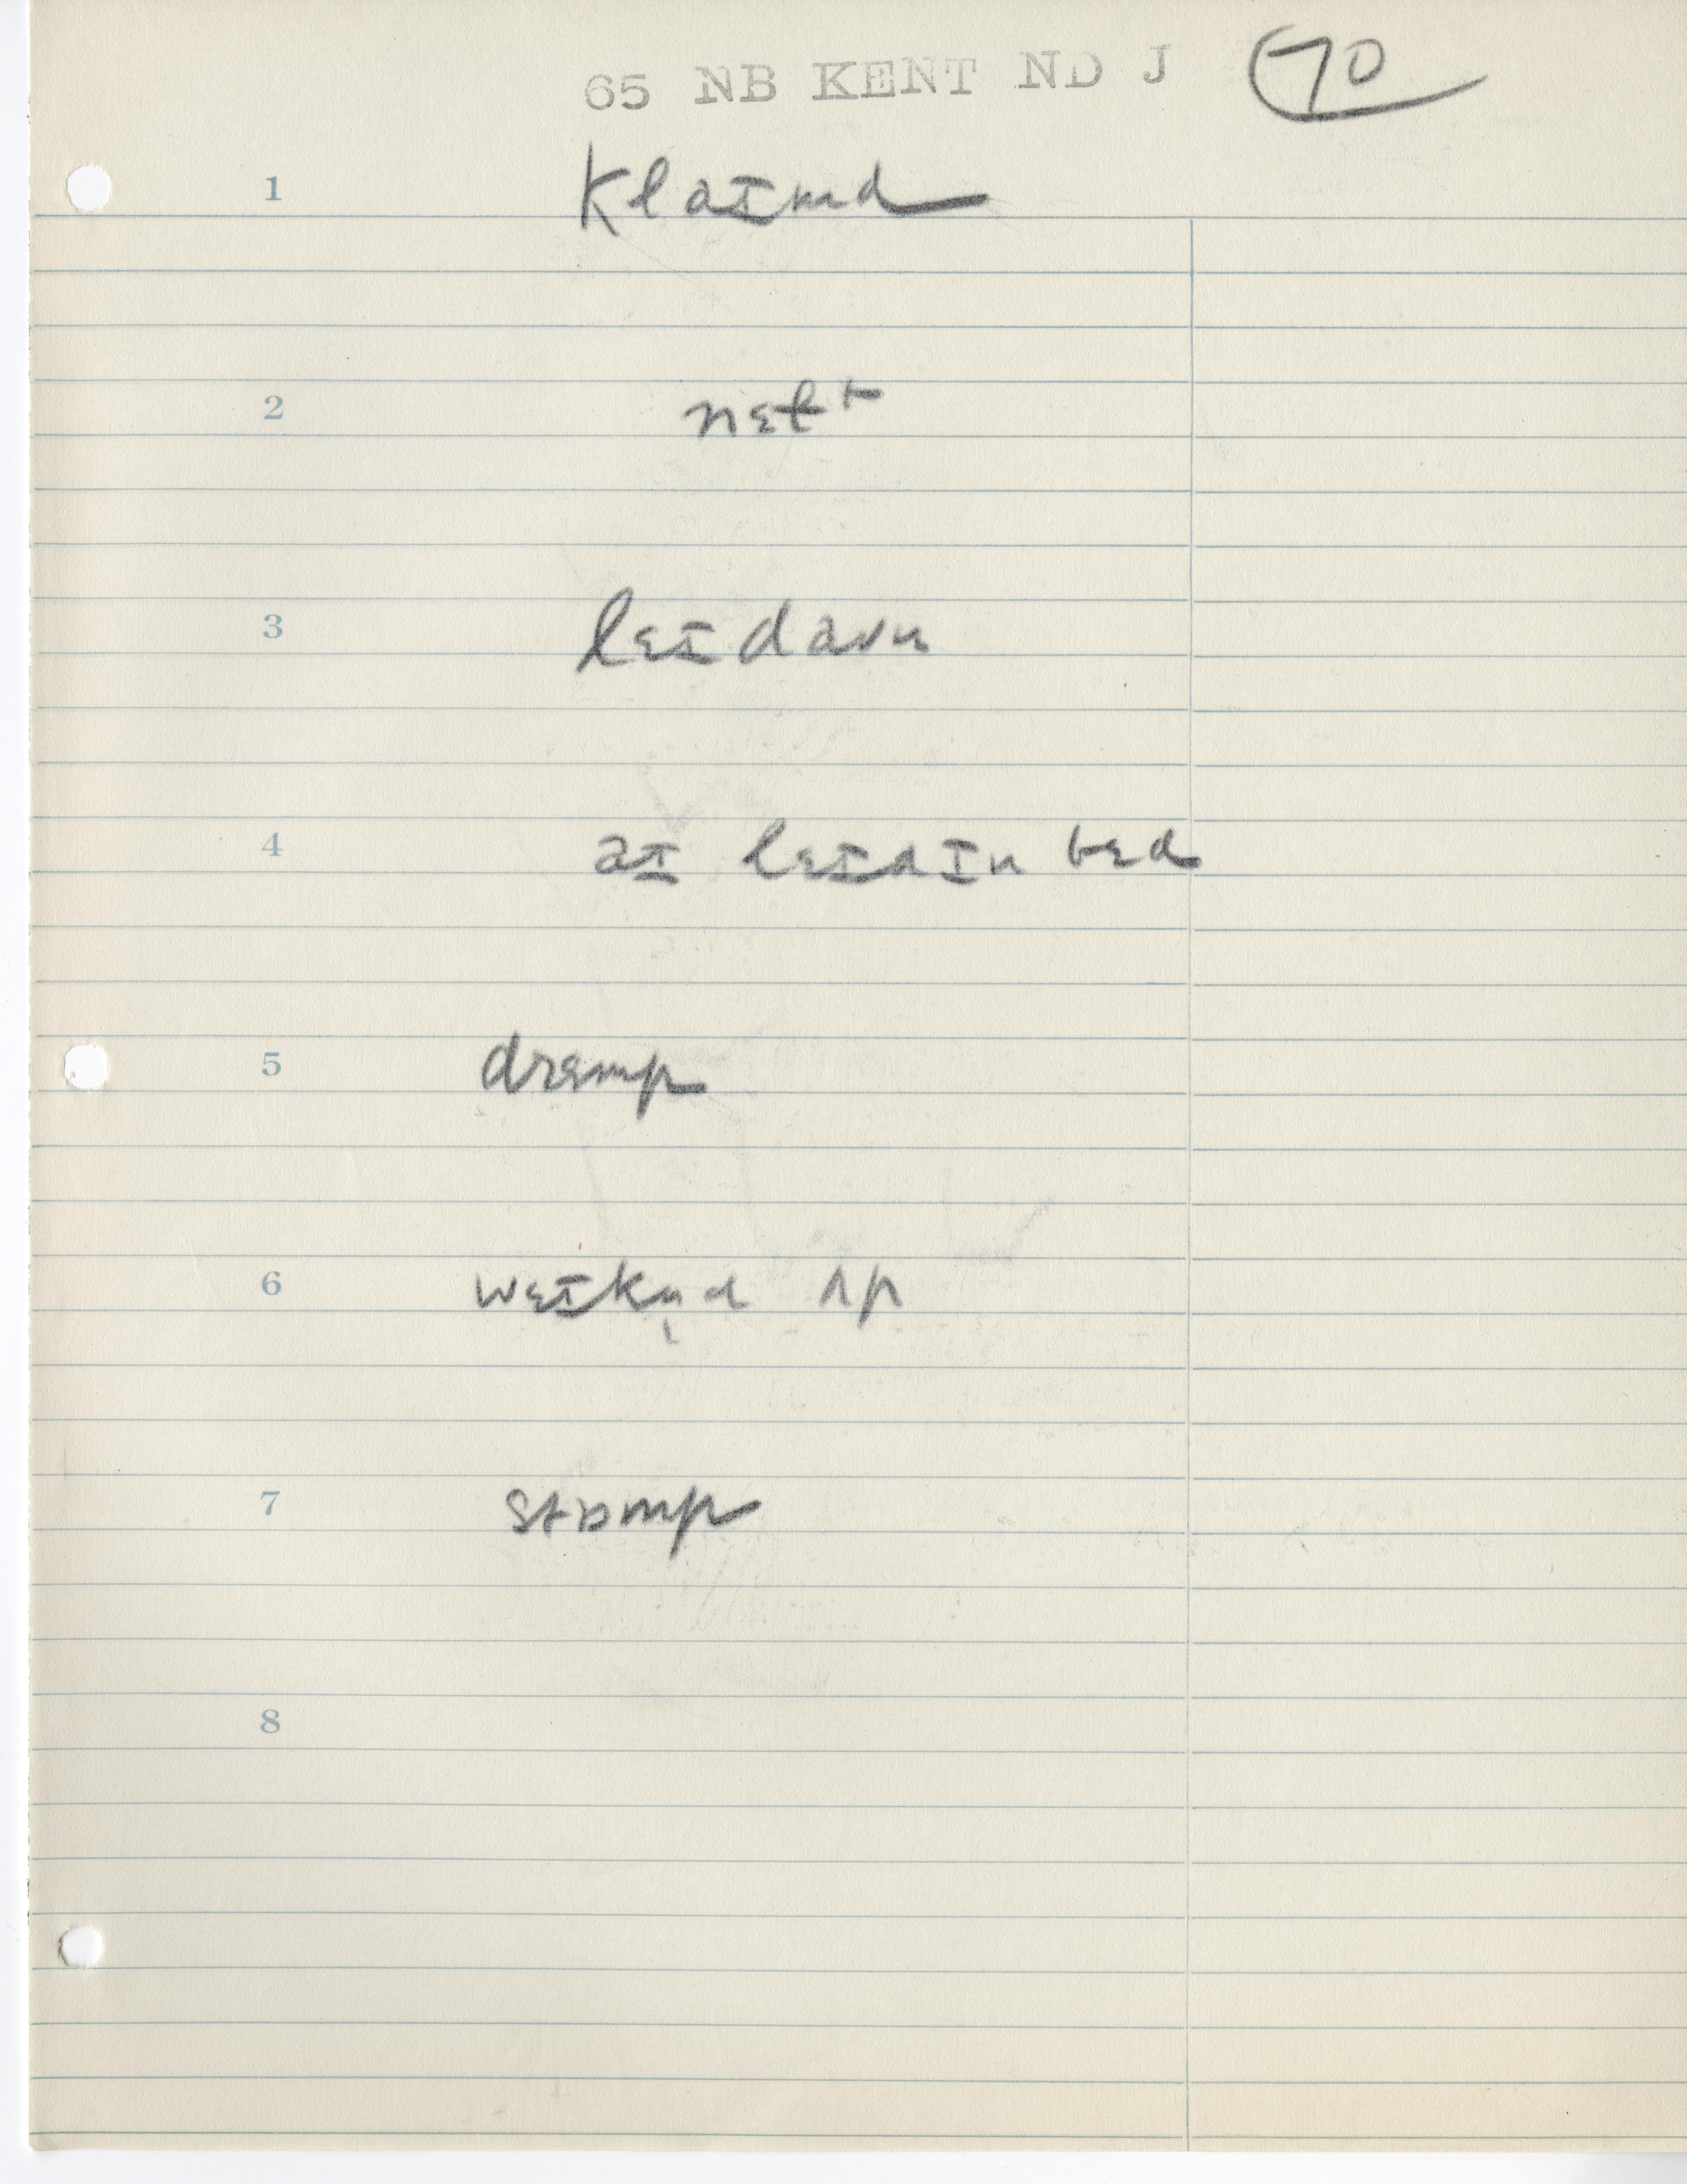 65 NB KENT ND J 70
1 klaɪmd
2 nɛlt
3 lɛɪ daʊn
4 aɪ lɛɪd ɪn bɛd
5 drɛmp
6 wɛɪkn̩d ʌp
7 stɒmp
8